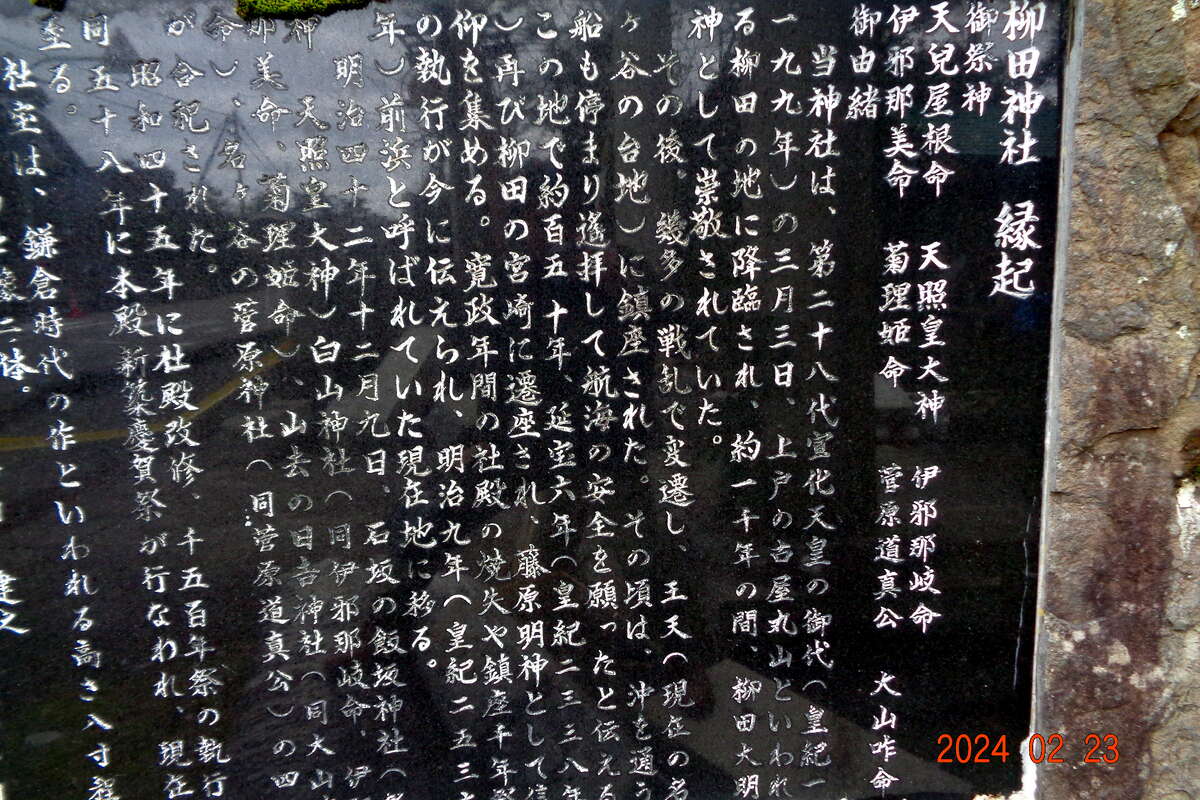 柳田神社 縁起
御祭神
天兒屋根命 天照皇大神 伊邪那岐命
伊邪那美命 菊理姫命 菅原道真公 大山咋命
御由緒
当神社は、第二十八代宣化天皇の御代(皇紀一
一九九年)の三月三日、上戸の古屋丸山といわれ
る柳田の地に降臨され、約一千年の間、柳田大明
神として崇敬されていた。
その後、幾多の戦乱で変遷し、王天(現在の名
ヶ谷の台地)に鎮座された。その頃は、沖を通う
船も停まり遙拝して航海の安全を願ったと伝える
この地で約百五十年、延宝六年(皇紀二三三八年
)再び柳田の宮崎に遷座され、藤原明神として信
仰を集める。寛政年間の社殿の焼失や鎮座千年祭
の執行が今に伝えられ、明治九年(皇紀二五三六
年)前浜と呼ばれていた現在地に移る。
明治四十二年十二月九日、石坂の飯坂神社(
神 天照皇大神)白山神社(同伊邪那岐命、伊
那美命、菊理姫命)、山去の日吉神社(同大山
命)、名ヶ谷の菅原神社(同菅原道真公)の四
が合祀された。
昭和四十五年に社殿改修、千五百年祭の執行
同五十八年に本殿新築慶賀祭が行なわれ、現在
至る。
社宝は、鎌倉時代の作といわれる高さ八寸程
二体。
2024 02 23